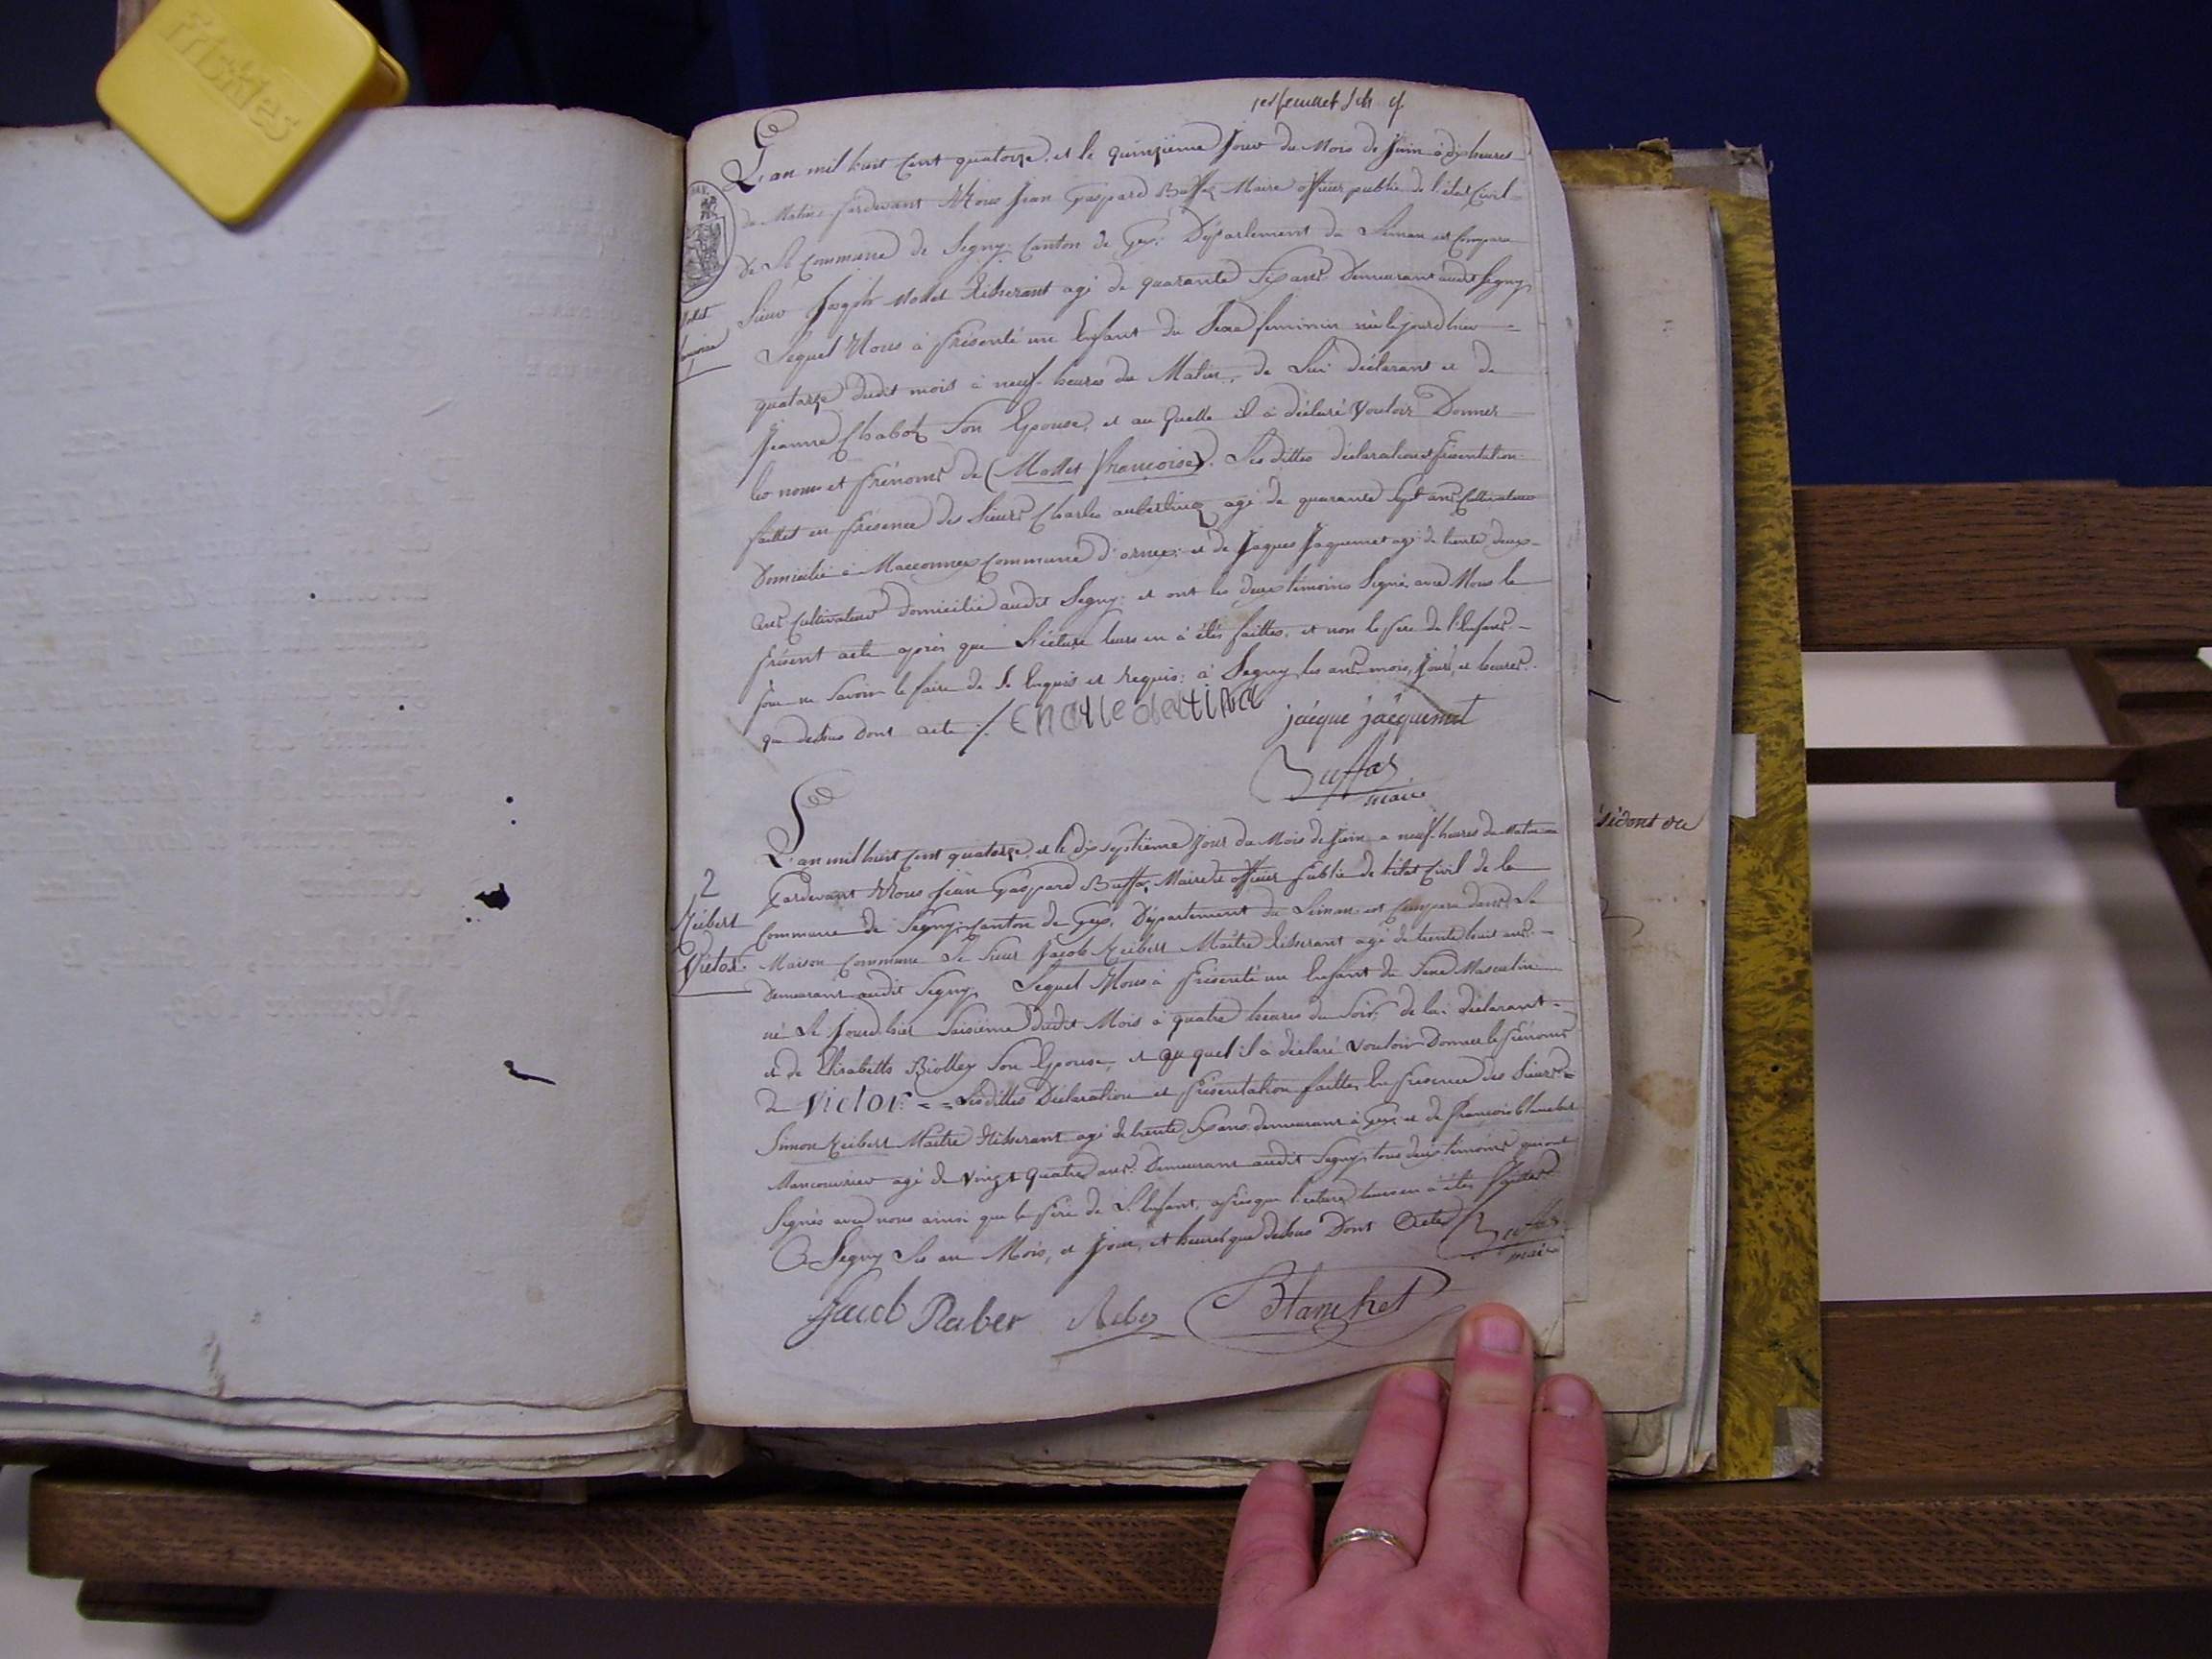 friskies
1er feuillet
L'an mil huit Cent quatorze, et le quinzieme Jour du Mois de Juin à dix heures
du Matin, Pardevant Nous Jean Gaspard Buffaz Maire officier public de l'état Civil
de la Commune de Segny, Canton de Gex, Département du Léman est Comparu
Sieur Joseph Mollet tisserant agé de quarante Six ans Demeurant audit Segny
Lequel Nous à Présenté un Enfant du Sexe feminin née le jourd'hier
quatorze dudit mois à neuf heures du Matin, de Lui déclarant et de
Jeanne Chabot Son Epouse, et au Quelle il à déclaré Vouloir Donner
les noms et Prénoms de (Mollet françoise). Lesdittes déclaration et Présentation
faittes en Présence des Sieurs Charles agé de quarante Sept ans Cultivateur
Domicilié à Maconnex Commune d'ornex; et de Jaques Jaquemet agé de trente deux
ans Cultivateur domicilié audit Segny; et ont les deux témoins Signé avec Nous le
Présent acte après que Lecture leurs en à étés faittes, et non le Pere de l'Enfant
Pour ne Savoir le faire de Ce Enquis et Requis: à Segny les ans, mois, Jours, et heures
que dessus Dont acte ./.
jacque jacquemet
Buffaz
maire
2
Reibert
Victor
L'an mil huit Cent quatorze, et le dix Septième Jour du Mois de Juin a neuf heures du Matin
Pardevant Nous Jean Gaspard Buffaz, Maire officier Public de l'état Civil de la
Commune de Segny, Canton de Gex, Département du Léman est Comparu dans la
Maison Commune Le Sieur Jacob Reibert Maitre tisserant agé de trente huit ans
Demeurant audit Segny, Lequel Nous à Présenté un Enfant du Sexe Masculin
né Le Jourd'hier Saisième dudit Mois à quatre heures du Soir, de lui déclarant
et de Elisabeth Biolley Son Epouse, et au quel il à déclaré Vouloir Donner le Prénoms
de Victor: = = Lesdittes Déclaration et Présentation faittes En Presence des Sieurs
Simon Reibert Maitre tisserant agé de trente Six ans demeurant à Gex, et de François Blanchet
Manouvrier agé de Vingt Quatre ans Demeurant audit Segny, tous deux témoins qui ont
Signés avec nous ainsi que le Pere de L'Enfant, après que lecture leurs en à étés faittes
A Segny Les an Mois, et Jour, et heures que dessus Dont Acte Buffaz
maire
Jacob Raber Reber Blanchet